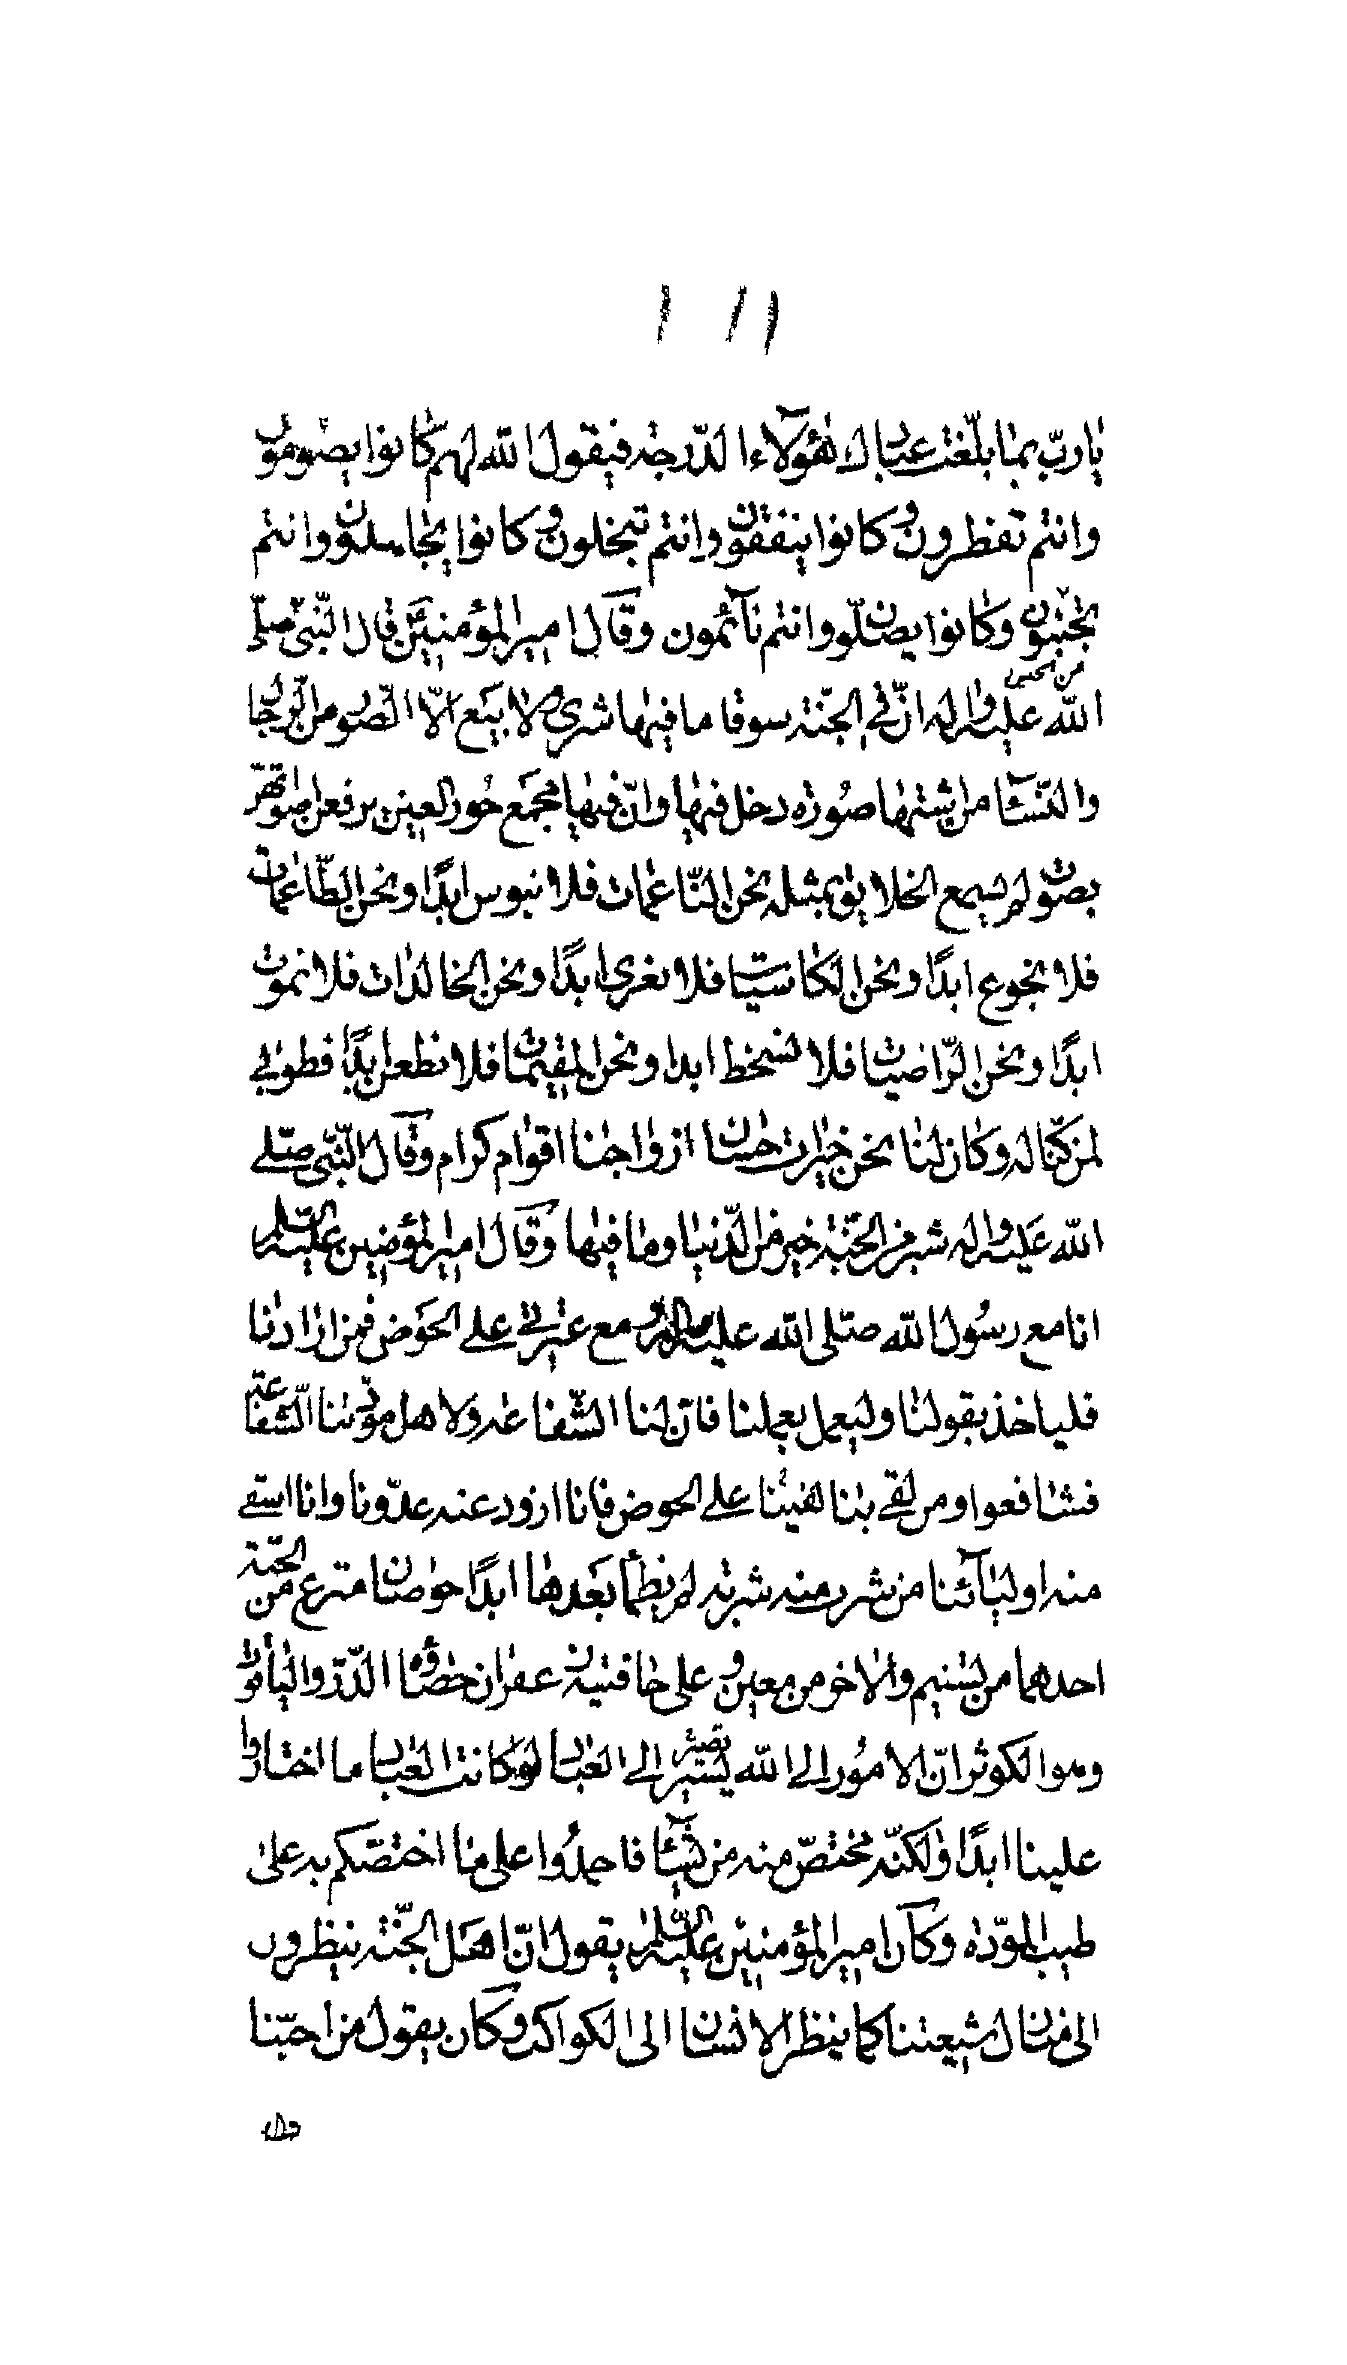 ١١ ١
يا ربّ بما بلّغت عبادك هؤلاء الدّرجة فيقول الله لهم كانوا يصومون
وانتم تفطرون وكانوا ينفقون وانتم تبخلون وكانوا يجاهدون وانتم
تجبنون وكانوا يصلّون وانتم نآئمون وقال امير المؤمنين قال النّبى صلّى
الله عليه واله انّ في الجنّة سوقا ما فيها شرى ولا بيع الّا الصّور من الرّجال
والنّسآء من يشتهى صورة دخل فيها وانّ فيها مجمع حور العين يرفعن اصواتهنّ
بصوت لم يسمع الخلايق بمثله نحن النّاعمات فلا نبوس ابدًا ونحن الطّاعمات
فلا نجوع ابدًا ونحن الكاسيات فلا نعرى ابدًا ونحن الخالدات فلا نموت
ابدًا ونحن الرّاضيات فلا نسخط ابدا ونحن المقيمات فلا نظعن ابدًا فطوبى
لمن كنّا له وكان لنا نحن خيرات حسان ازواجنا اقوام كرام وقال النّبى صلّى
الله عليه واله شبر من الجنّة خير من الدّنيا وما فيها وقال امير المؤمنين عليه السّلم
انا مع رسول الله صلّى الله عليه واله ومع عترتي على الحوض فمن ارادنا
فلياخذ بقولنا وليعمل بعملنا فانّ لنا الشّفاعة ولاهل مودّتنا الشّفاعة
فتنافعوا ومن لقى بنا لقينا على الحوض فانا ازود عنه عدّونا وانا اسقى
منه اوليآئنا من شرب منه شربة لم يظمأ بعدها ابدًا حوضنا مترع من الجنّة
احدهما من تسنيم والاخر من معين وعلى حافتيه زعفران حصاؤه الدّرّ والياقوت
وهو الكوثر انّ الامور الى الله تصير ليس الى العباد لو كانت الى العباد ما اختاروا
علينا ابدًا ولكنّه مختصّ منه من شآء فاحمدوا على ما اختصّكم به على
طيب المودّة وكان امير المؤمنين عليه السّلم يقول انّ اهل الجنّة ينظرون
الى منازل شيعتنا كما ينظر الانسان الى الكواكب وكان يقول من احبّنا